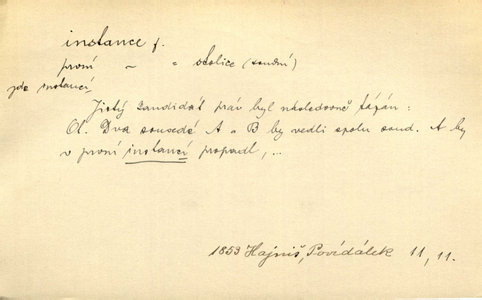 instance f.
první ~ = stolice (soudní)
jde instancí
Jistý kandidát práv byl následovně tázán:
Ot. Dva sousedé A a B by vedli spolu soud. A by
v první instanci propadl, ...
1853 Hajniš, Povídálek 11, 11.